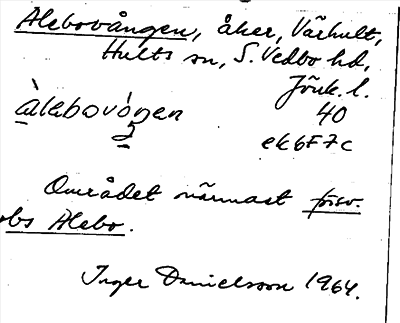 Alebovången, åker, Värhult,
Hults sn, S. Vedbo hd,
Jönk. l.
àlebovóŋen 40
2
ek 6F7c
Området närmast försv.
obs Alebo.
Inger Danielsson 1964.